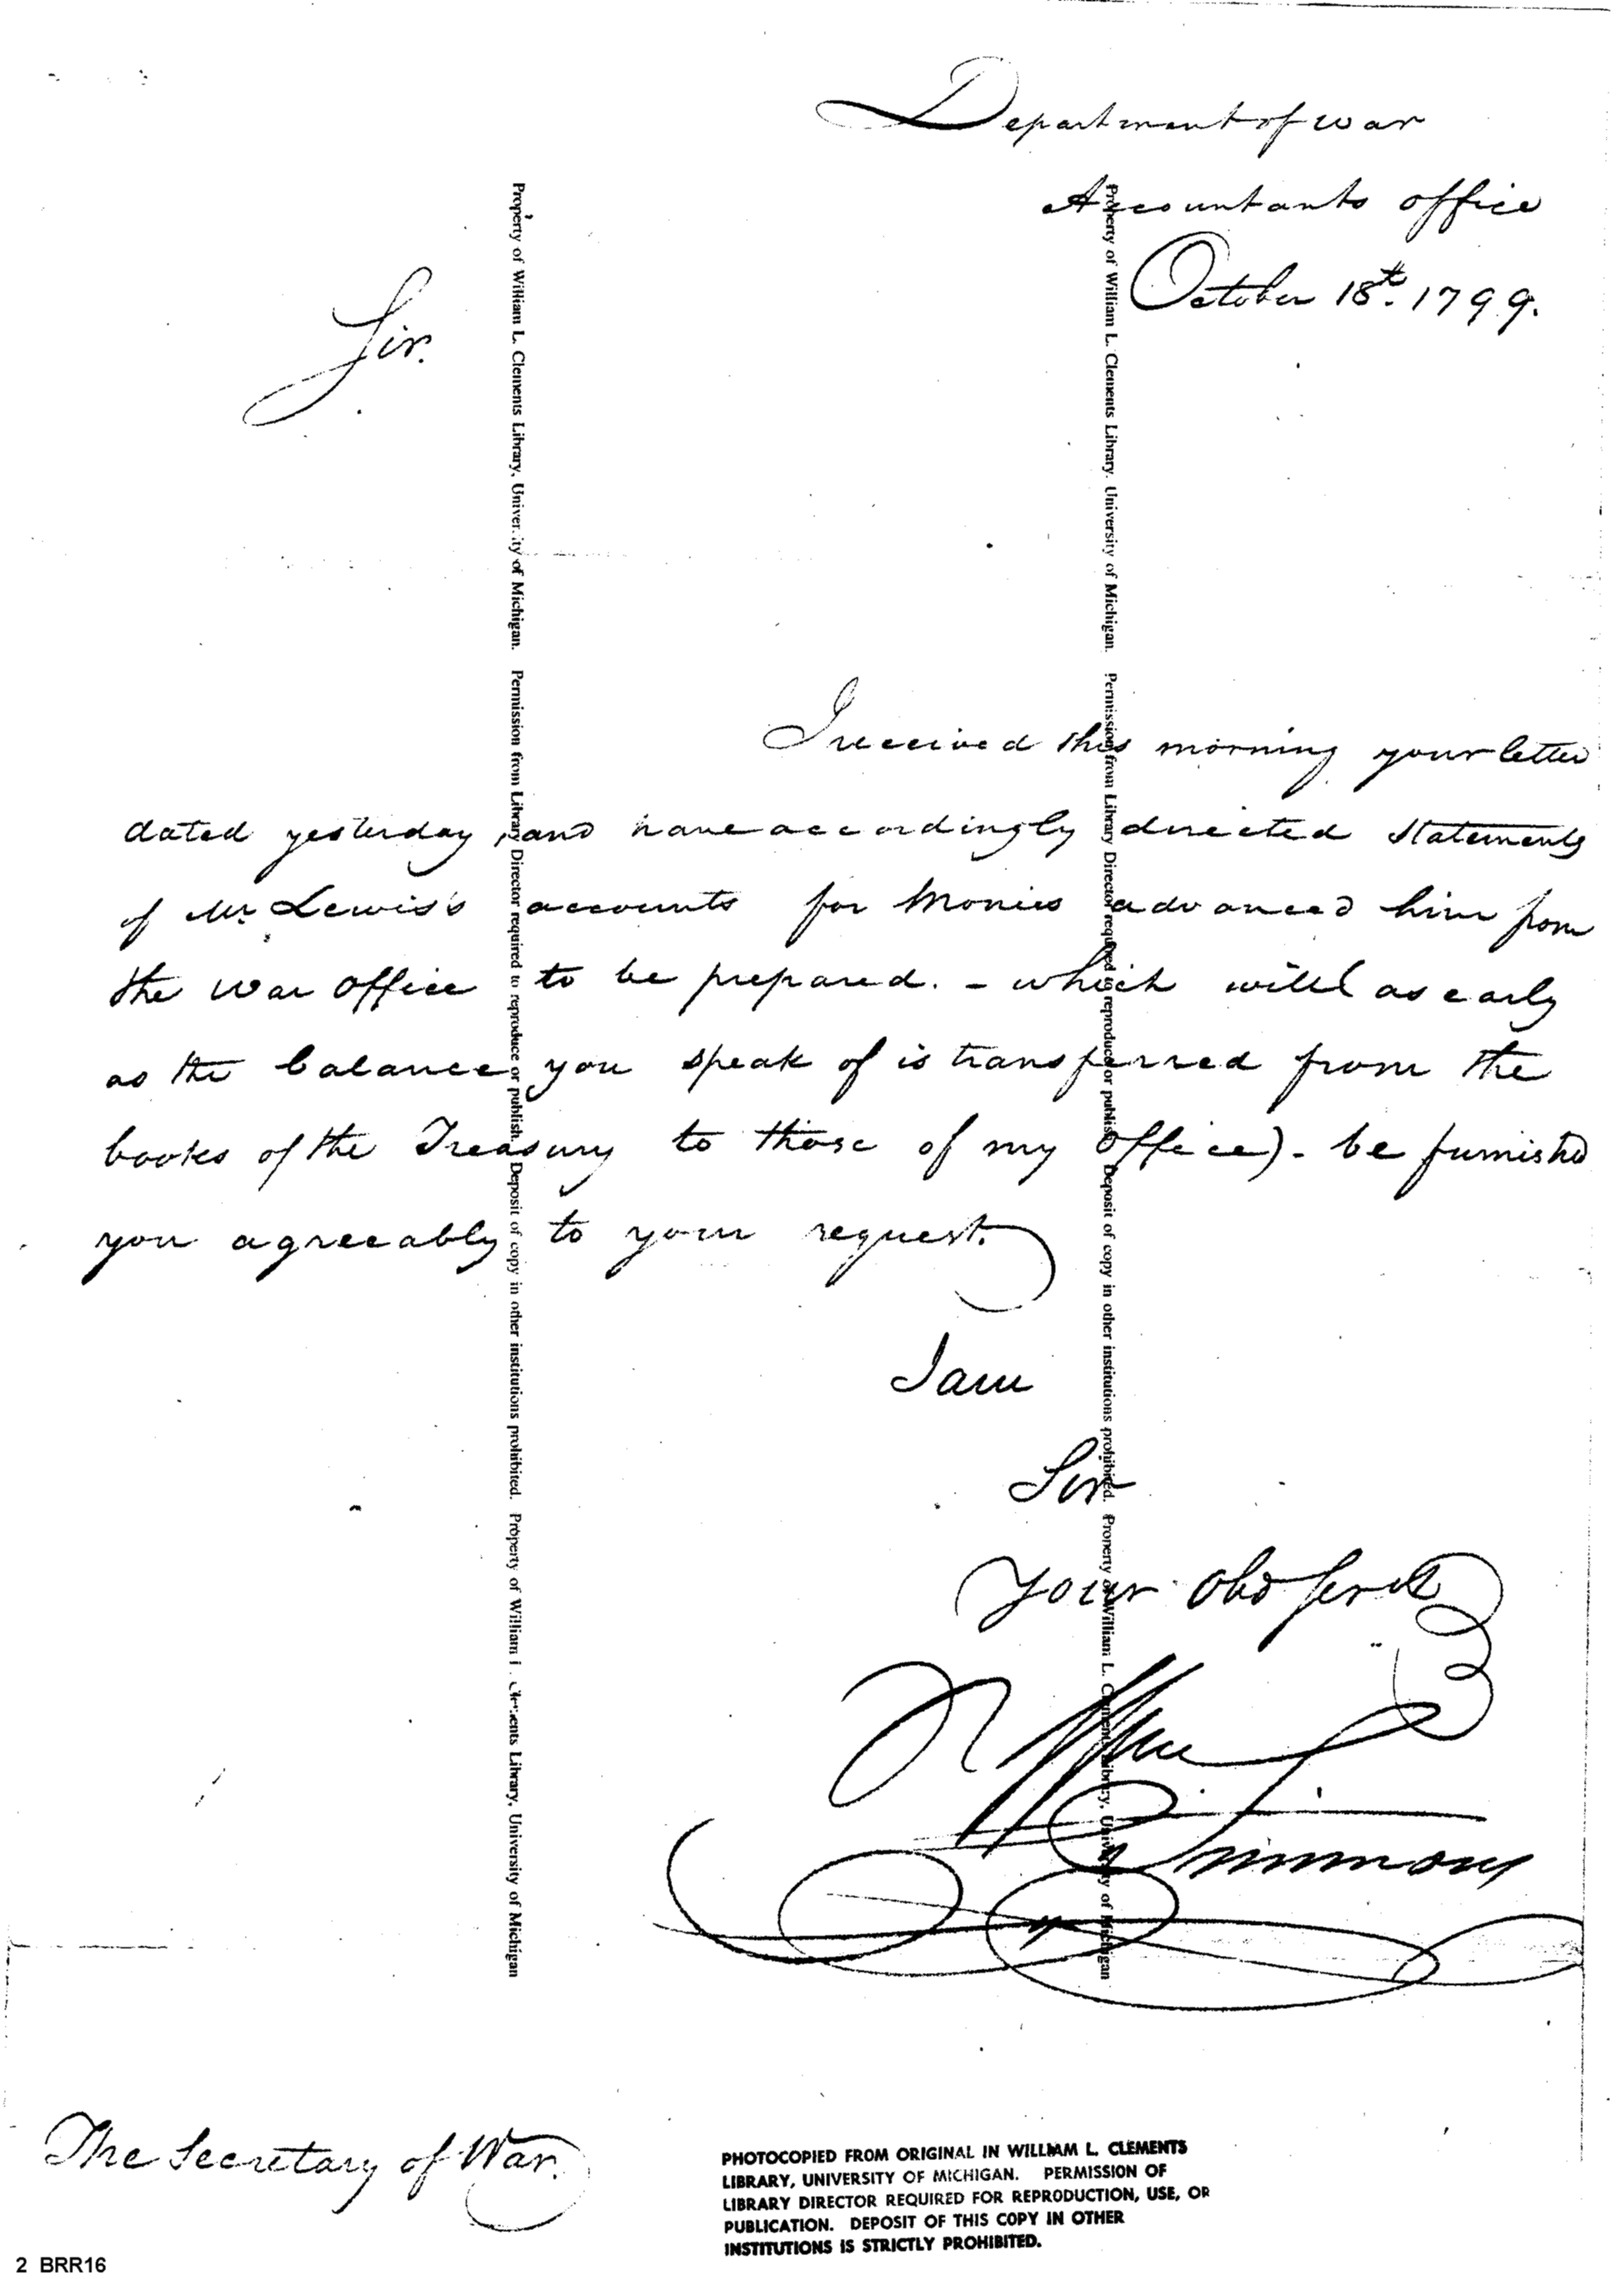 Department of war
Accountants office
October 18th. 1799.
Sir.
I received this morning your letter
dated yesterday, and have accordingly directed Statements
of Mr. Lewis's accounts for Monies advanced him from
the war office to be prepared. - which will (as early
as the balance you speak of is transferred from the
books of the Treasury to those of my office) - be furnished
you agreeably to your request.
I am
Sir
Your obd Servt
Wm Simmons
The Secretary of War.
Property of William L. Clements Library, University of Michigan. Permission from Library Director required to reproduce or publish. Deposit of copy in other institutions prohibited. Property of William L. Clements Library, University of Michigan
Property of William L. Clements Library, University of Michigan. Permission from Library Director required to reproduce or publish. Deposit of copy in other institutions prohibited. Property of William L. Clements Library, University of Michigan
PHOTOCOPIED FROM ORIGINAL IN WILLIAM L. CLEMENTS
LIBRARY, UNIVERSITY OF MICHIGAN. PERMISSION OF
LIBRARY DIRECTOR REQUIRED FOR REPRODUCTION, USE, OR
PUBLICATION. DEPOSIT OF THIS COPY IN OTHER
INSTITUTIONS IS STRICTLY PROHIBITED.
2 BRR16